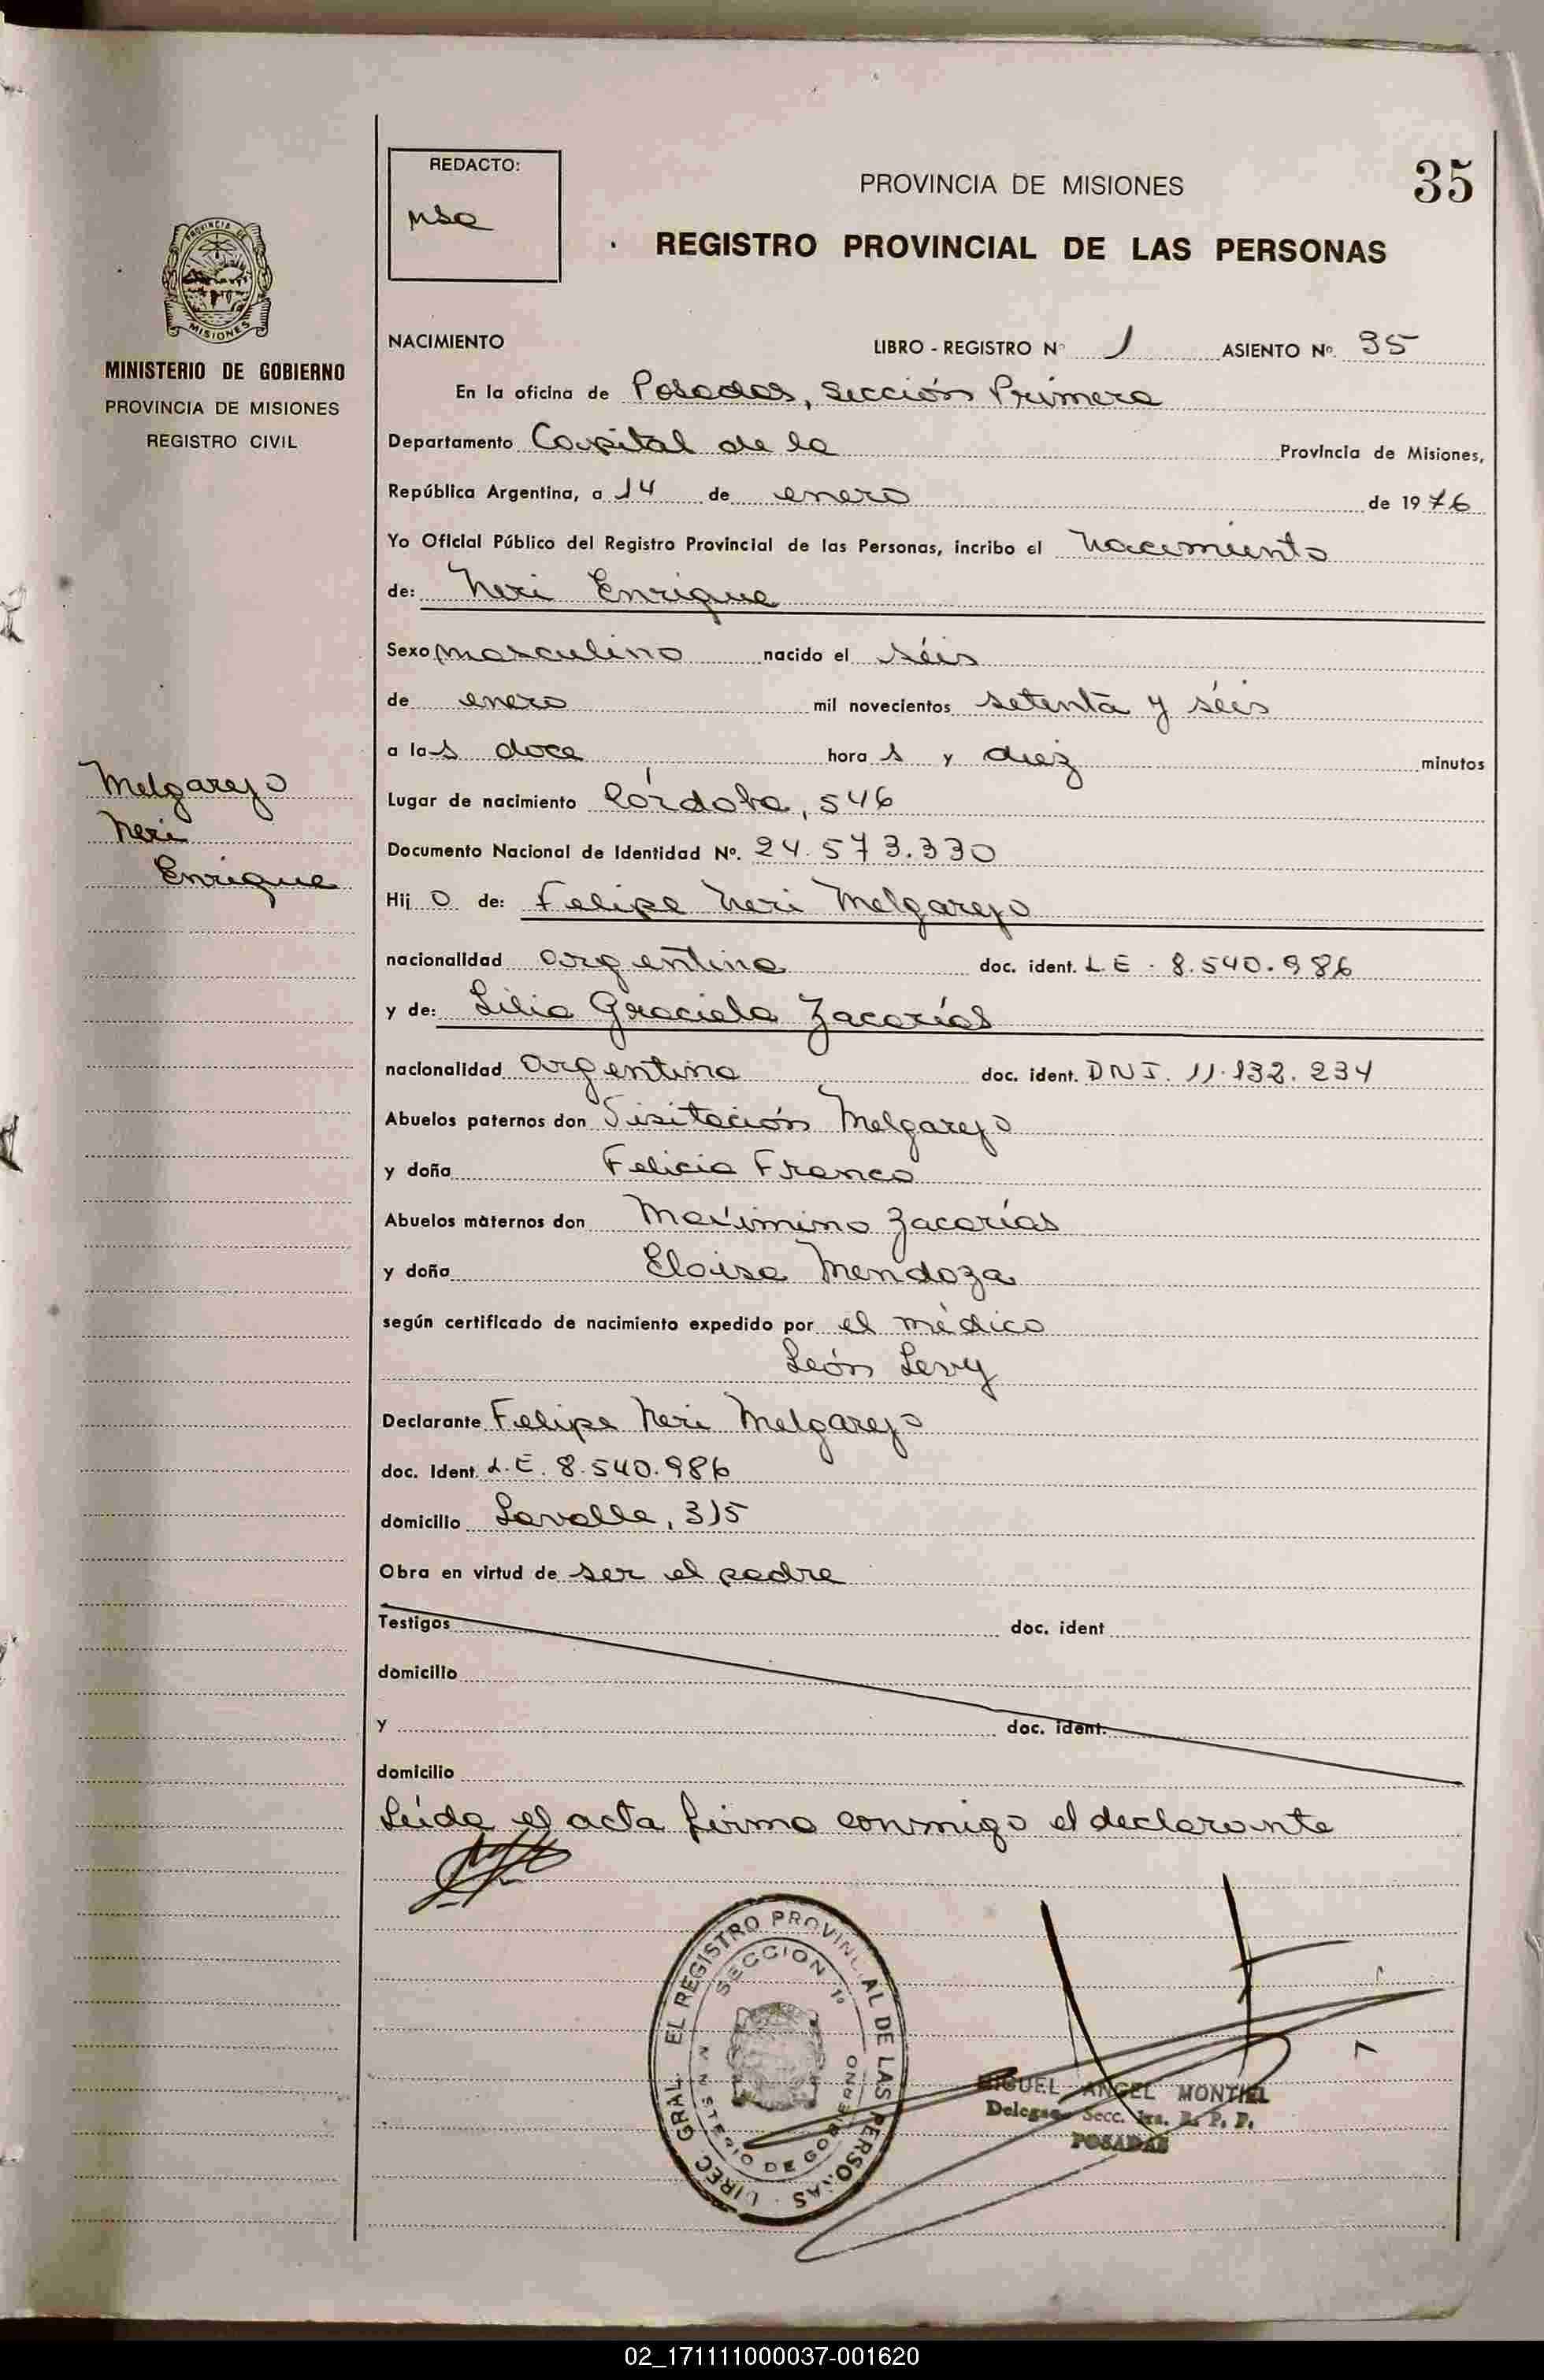 35
REDACTO:
PROVINCIA DE MISIONES
REGISTRO PROVINCIAL DE LAS PERSONAS
PROVINCIA DE
MISIONES
MINISTERIO DE GOBIERNO
PROVINCIA DE MISIONES
REGISTRO CIVIL
Melgarejo
Neri
Enrique
NACIMIENTO LIBRO - REGISTRO Nº 1 ASIENTO Nº. 35
En la oficina de Posadas, Sección Primera
Departamento Capital de la Provincia de Misiones,
República Argentina, a 14 de enero de 1976
Yo Oficial Público del Registro Provincial de las Personas, incribo el nacimiento
de: Neri Enrique
Sexo masculino nacido el séis
de enero mil novecientos setenta y séis
a las doce horas y diez minutos
Lugar de nacimiento Córdoba, 546
Documento Nacional de Identidad Nº. 24.573.330
Hijo de: Felipe Neri Melgarejo
nacionalidad argentina doc. ident. L.E. 8.540.986
y de: Lilia Graciela Zacarías
nacionalidad argentina doc. ident. DNI. 11.132.234
Abuelos paternos don Visitación Melgarejo
y doña Felicia Franco
Abuelos maternos don Maximino Zacarías
y doña Eloisa Mendoza
según certificado de nacimiento expedido por el médico
León Levy
Declarante Felipe Neri Melgarejo
doc. Ident. L.E. 8.540.986
domicilio Lavalle, 315
Obra en virtud de ser el padre
Testigos doc. ident
domicilio
y doc. ident.
domicilio
Leída el acta firma conmigo el declarante
DIREC. GRAL. EL REGISTRO PROVINCIAL DE LAS PERSONAS
SECCION 1º
MINISTERIO DE GOBIERNO
MIGUEL ANGEL MONTIEL
Delegado Secc. 1ra. R. P. P.
POSADAS
02_171111000037-001620